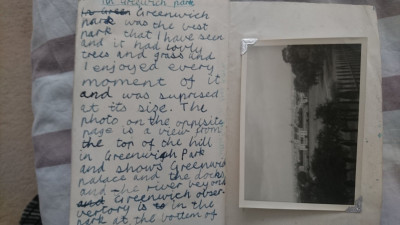 In Greenwich park
In Green Greenwich
park was the best
park that I have seen
and it had lovly
trees and grass and
I enjoyed every
moment of it
and was suprised
at its size. The
photo on the opposite
page is a view from
the top of the hill
in Greenwich Park
and shows Greenwich
palace and the docks
and the river beyond
and Greenwich obser-
vertory is to in the
park at the bottem of